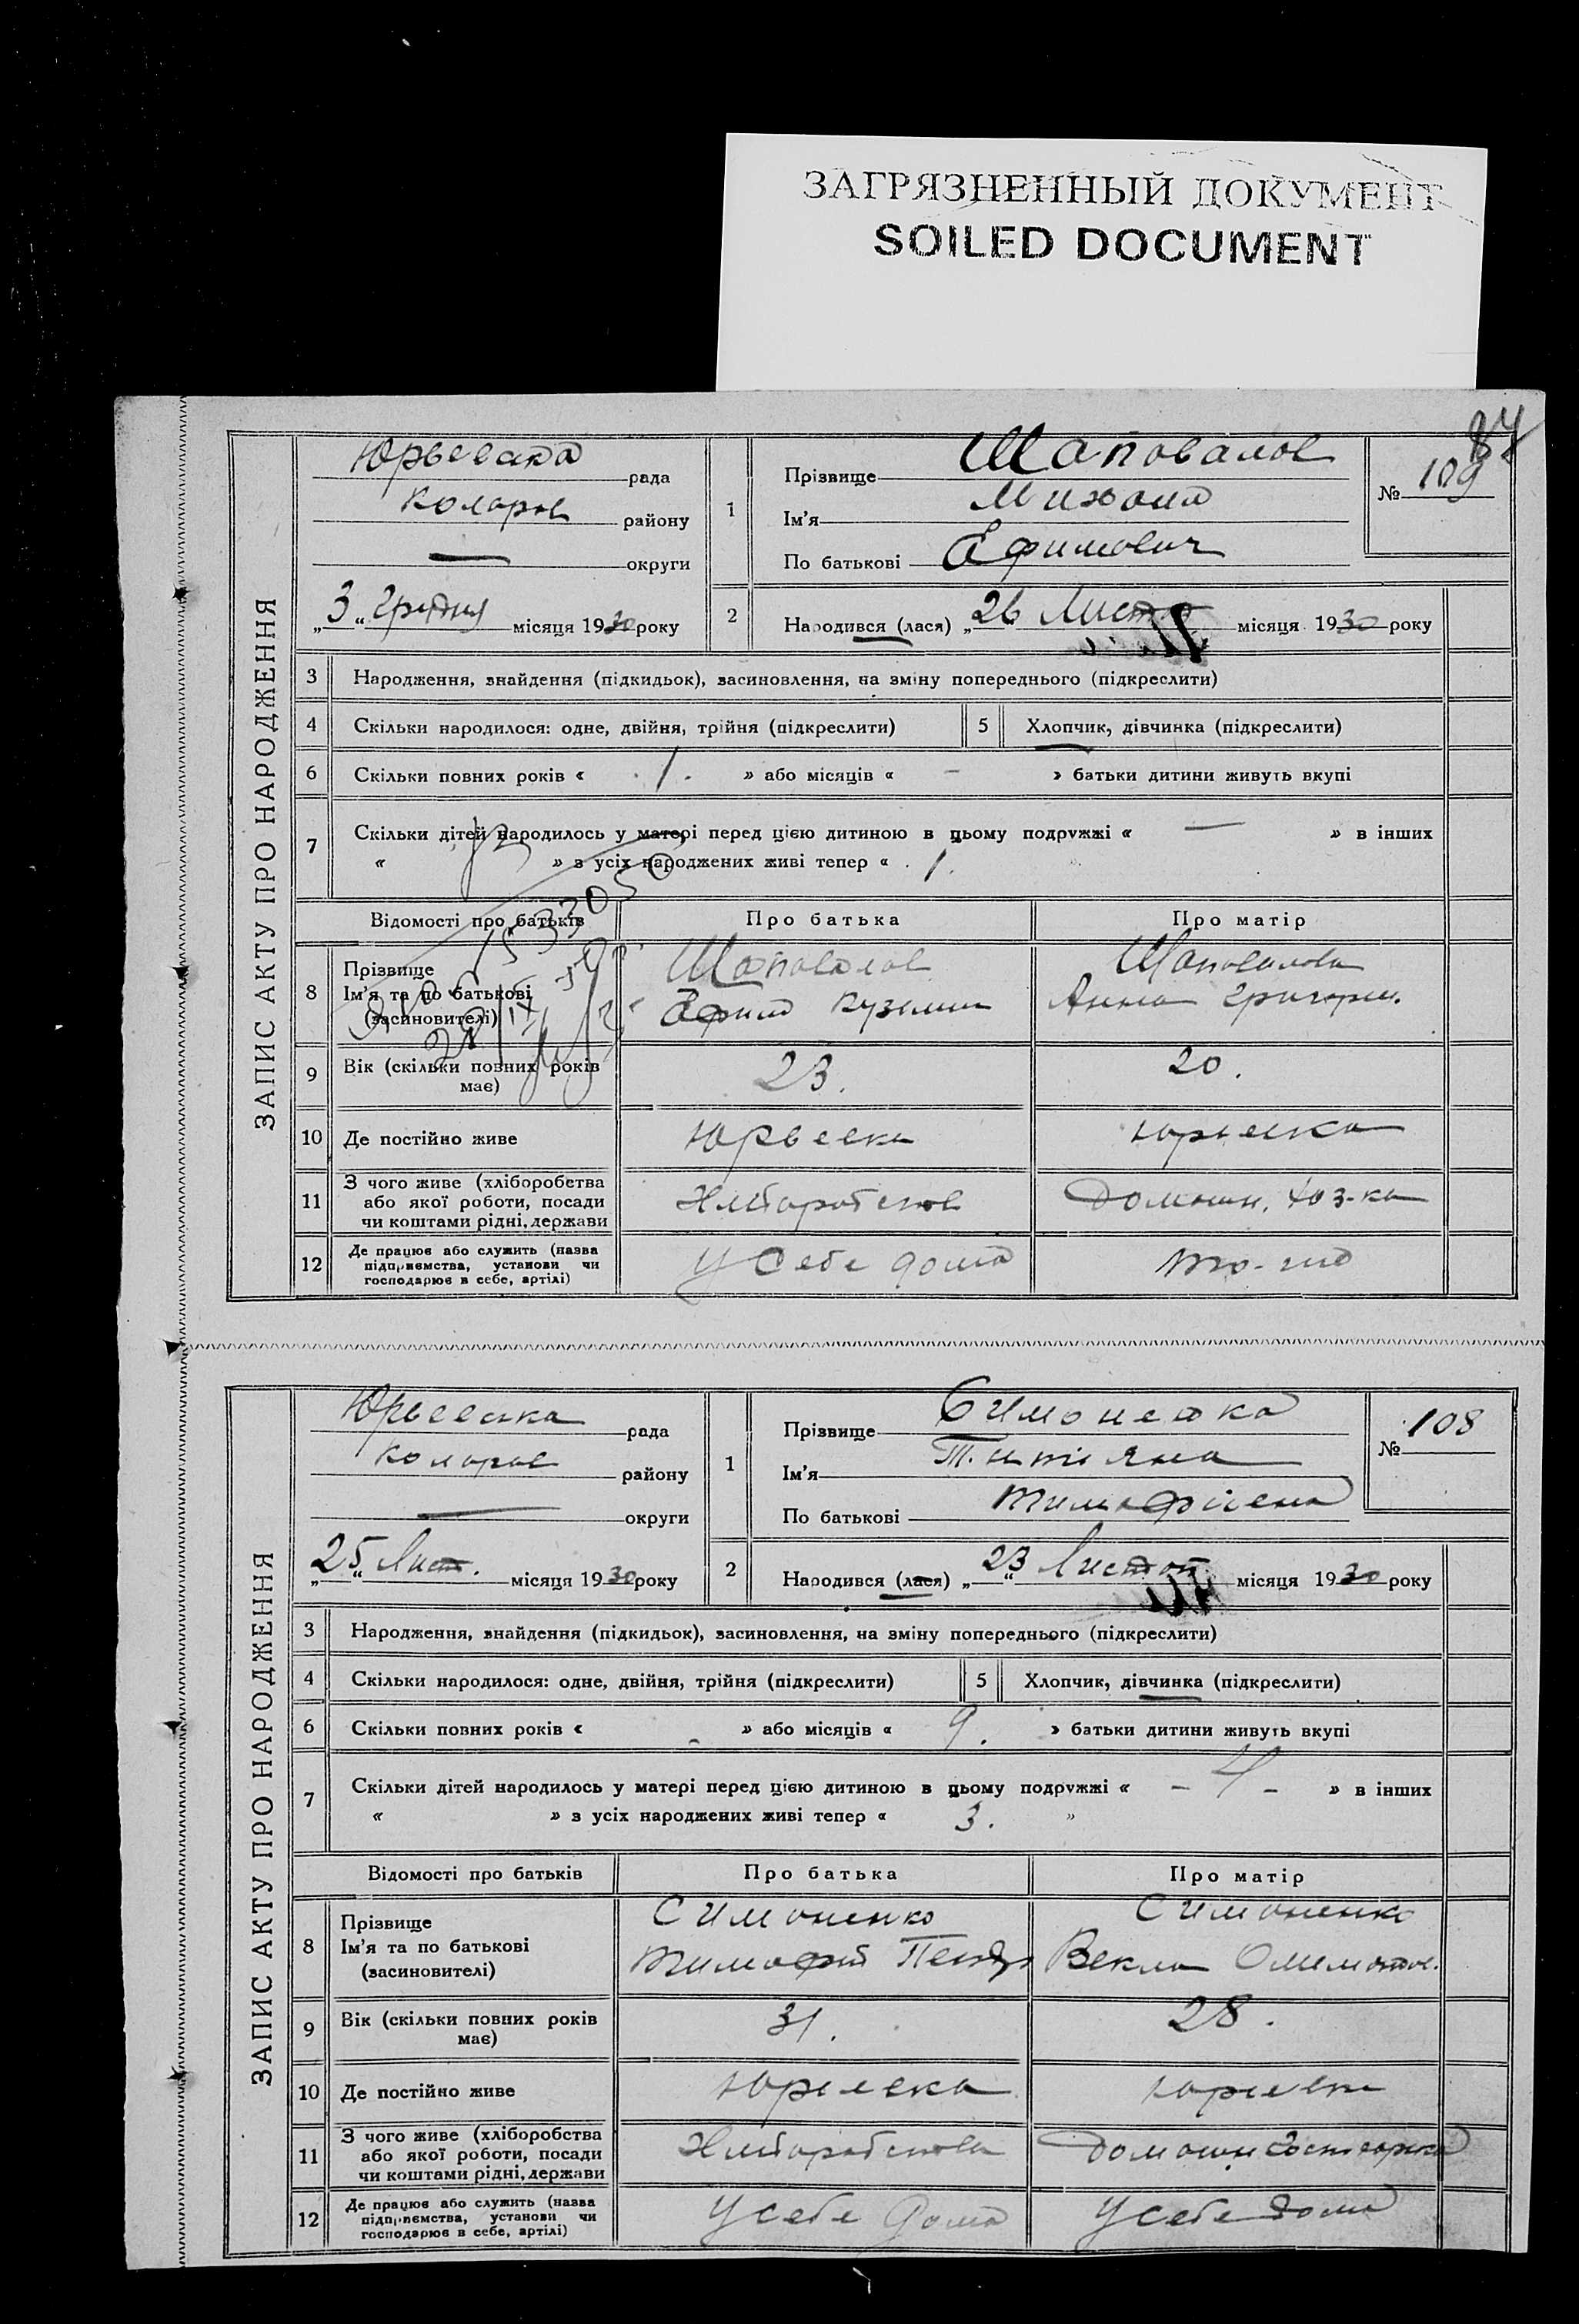 ЗАГРЯЗНЕННЫЙ ДОКУМЕНТ
SOILED DOCUMENT
87
ЗАПИС АКТУ ПРО НАРОДЖЕННЯ
Юрьевська рада
Коларов району
— округи
„3“ Грудня місяця 1930 року
1
Прізвище Шаповалов
Ім'я Михаил
По батькові Ефимович
№ 109
2
Народився (лася) „26 Лист. місяця 1930 року
3 Народження, знайдення (підкидьок), засиновлення, на зміну попереднього (підкреслити)
4 Скільки народилося: одне, двійня, трійня (підкреслити)
5 Хлопчик, дівчинка (підкреслити)
6 Скільки повних років « 1. » або місяців « — » батьки дитини живуть вкупі
7 Скільки дітей народилось у матері перед цією дитиною в цьому подружжі « — » в інших
« » з усіх народжених живі тепер « 1.
Відомості про батьків Про батька Про матір
8 Прізвище
Ім'я та по батькові
(засиновителі)
Шаповалов
Ефим Кузьмич
Шаповалова
Анна Григорьев.
9 Вік (скільки повних років
має)
23.
20.
10 Де постійно живе Юрьевка Юрьевка
11 З чого живе (хліборобства
або якої роботи, посади
чи коштами рідні, держави
Хлиборобством
Домашн. хоз-ка
12 Де працює або служить (назва
підприємства, установи чи
господарює в себе, артілі)
У себе дома
то-же
ЗАПИС АКТУ ПРО НАРОДЖЕННЯ
Юрьевська рада
Коларов району
— округи
„25“ Лист. місяця 1930 року
1
Прізвище Симоненко
Ім'я Титіяна
По батькові Тимофіевна
№ 108
2
Народився (лася) „23“ Листоп. місяця 1930 року
3 Народження, знайдення (підкидьок), засиновлення, на зміну попереднього (підкреслити)
4 Скільки народилося: одне, двійня, трійня (підкреслити)
5 Хлопчик, дівчинка (підкреслити)
6 Скільки повних років « - » або місяців « 9. » батьки дитини живуть вкупі
7 Скільки дітей народилось у матері перед цією дитиною в цьому подружжі « - 4 - » в інших
« » з усіх народжених живі тепер « 3. »
Відомості про батьків Про батька Про матір
8 Прізвище
Ім'я та по батькові
(засиновителі)
Симоненко
Тимофій
Симоненко
Векла
9 Вік (скільки повних років
має)
31.
28.
10 Де постійно живе Юрьевка Юрьевка
11 З чого живе (хліборобства
або якої роботи, посади
чи коштами рідні, держави
Хлиборобством
Домашн
12 Де працює або служить (назва
підприємства, установи чи
господарює в себе, артілі)
У себе дома
У себе дома